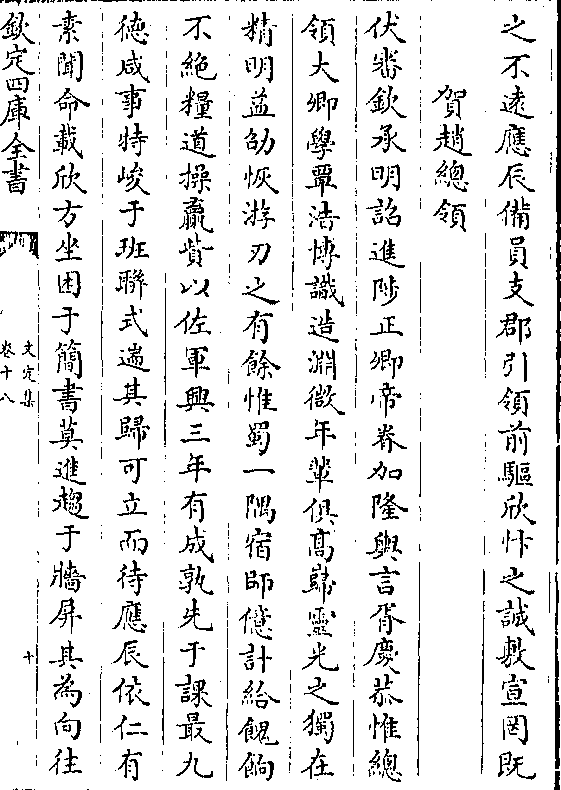 之不遠應辰備員支郡引領前驅欣忭之誠敷宣罔既
賀趙總領
伏審欽承明詔進陟正卿帝眷加隆輿言胥慶恭惟總
領大卿學覃浩博識造淵微年輩俱髙巋靈光之獨在
精明益劭恢游刃之有餘惟蜀一隅宿師億計給餽餉
不絶糧道操贏貲以佐軍興三年有成孰先于課最九
德咸事特峻于班聯式遄其歸可立而待應辰依仁有
素聞命載欣方坐困于簡書莫進趨于牆屏其為向往
欽定四庫全書
文定集
卷十八
十